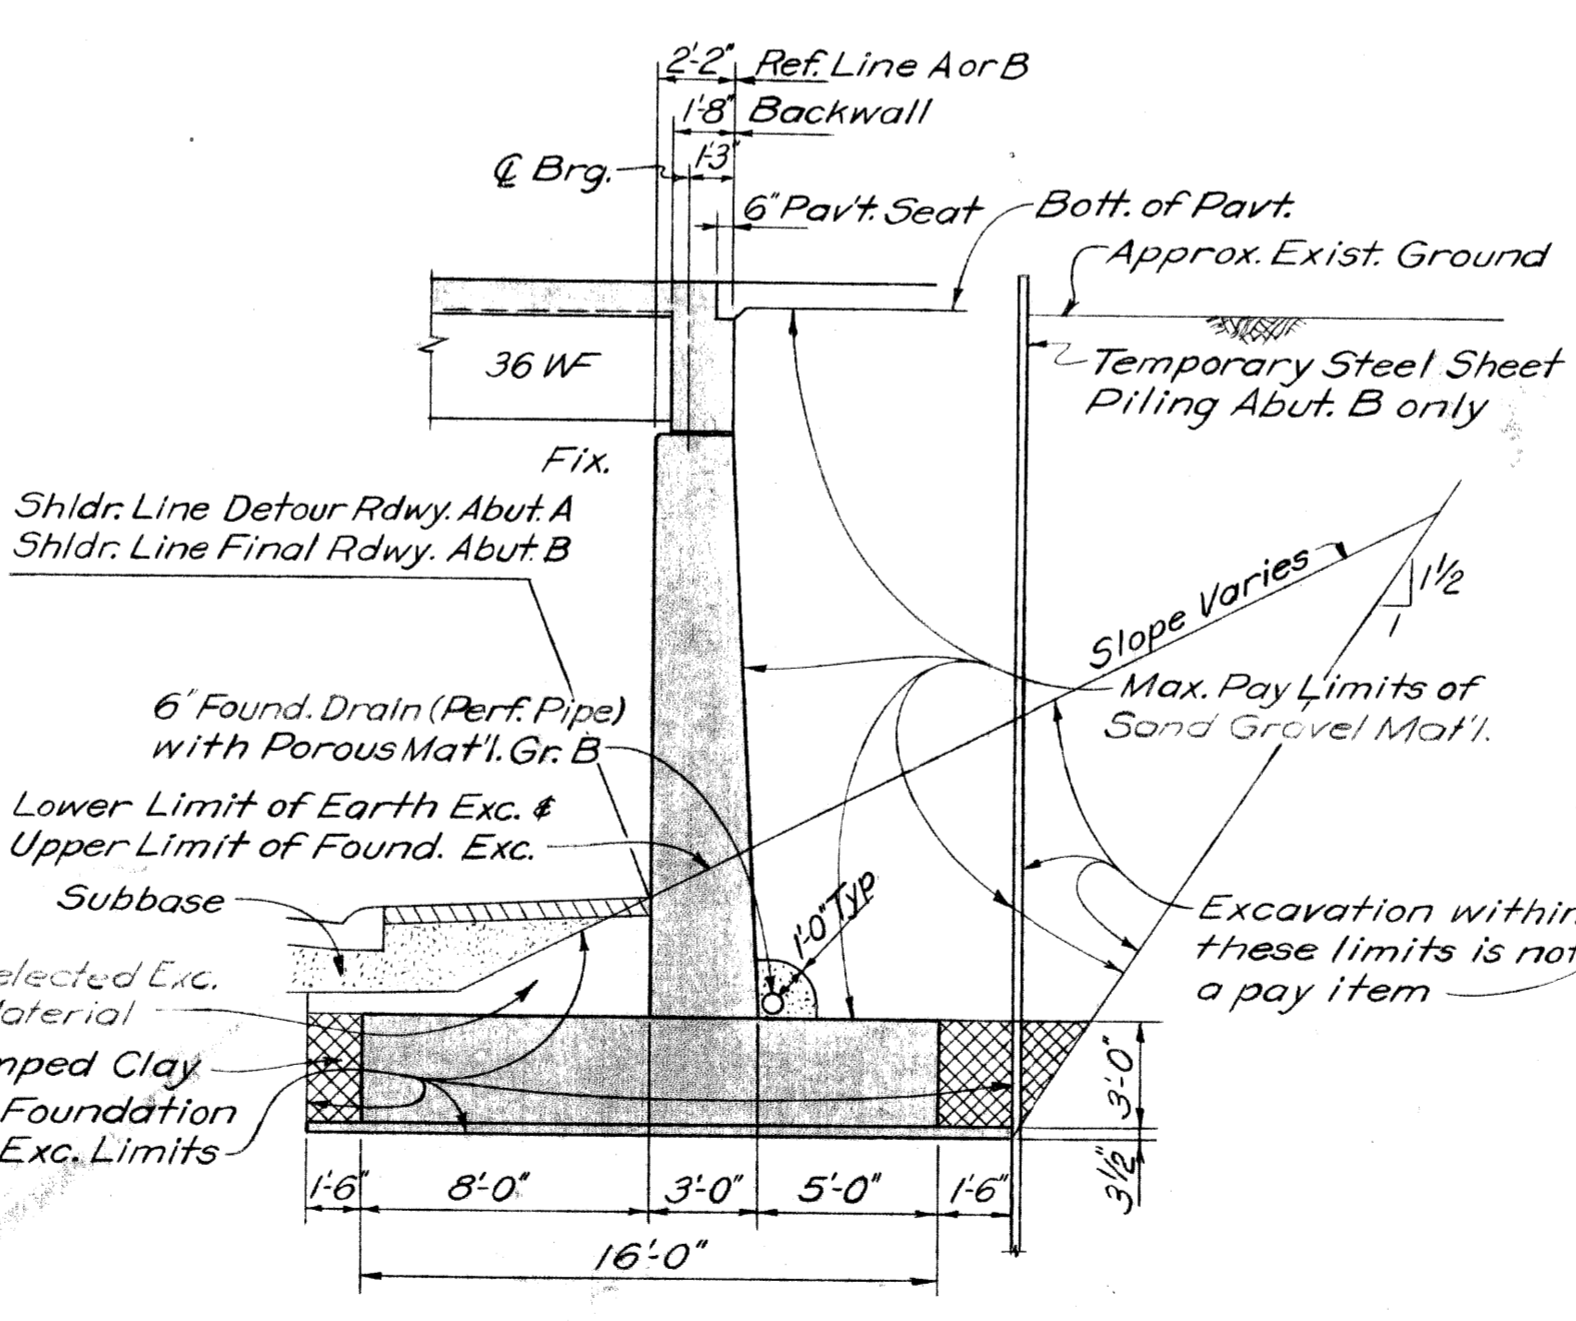 2'-2" Ref. Line A or B
1'-8" Backwall
1'-3"
℄ Brg.
6" Pav't. Seat
Bott. of Pavt.
Approx. Exist. Ground
36 WF
Temporary Steel Sheet
Piling Abut. B only
Fix.
Shldr. Line Detour Rdwy. Abut. A
Shldr. Line Final Rdwy. Abut. B
Slope Varies
1½
1
6" Found. Drain (Perf. Pipe)
with Porous Mat'l. Gr. B
Max. Pay Limits of
Sand Gravel Mat'l.
Lower Limit of Earth Exc. &
Upper Limit of Found. Exc.
Subbase
1'-0" Typ
Excavation within
these limits is not
a pay item
elected Exc.
Material
mped Clay
Foundation
Exc. Limits
3'-0"
3½"
1'-6" 8'-0" 3'-0" 5'-0" 1'-6"
16'-0"